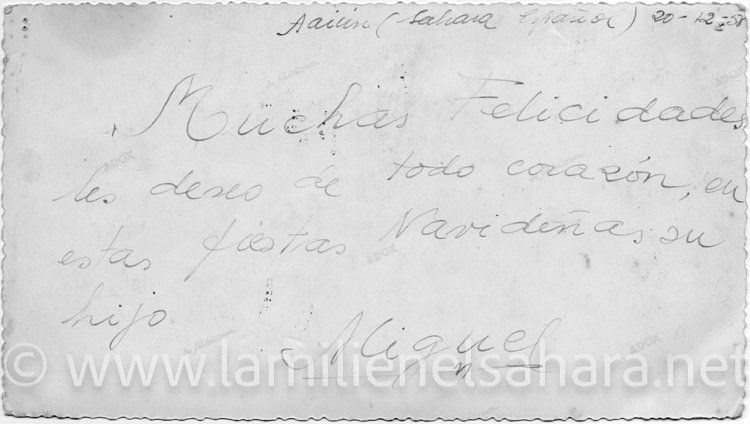 Aaiún (Sahara Español) 20-12-58
Muchas Felicidades
les deseo de todo corazón, en
estas fiestas Navideñas, su
hijo
Miguel
ADOX
ADOX
ADOX
ADOX
© www.lamilienelsahara.net